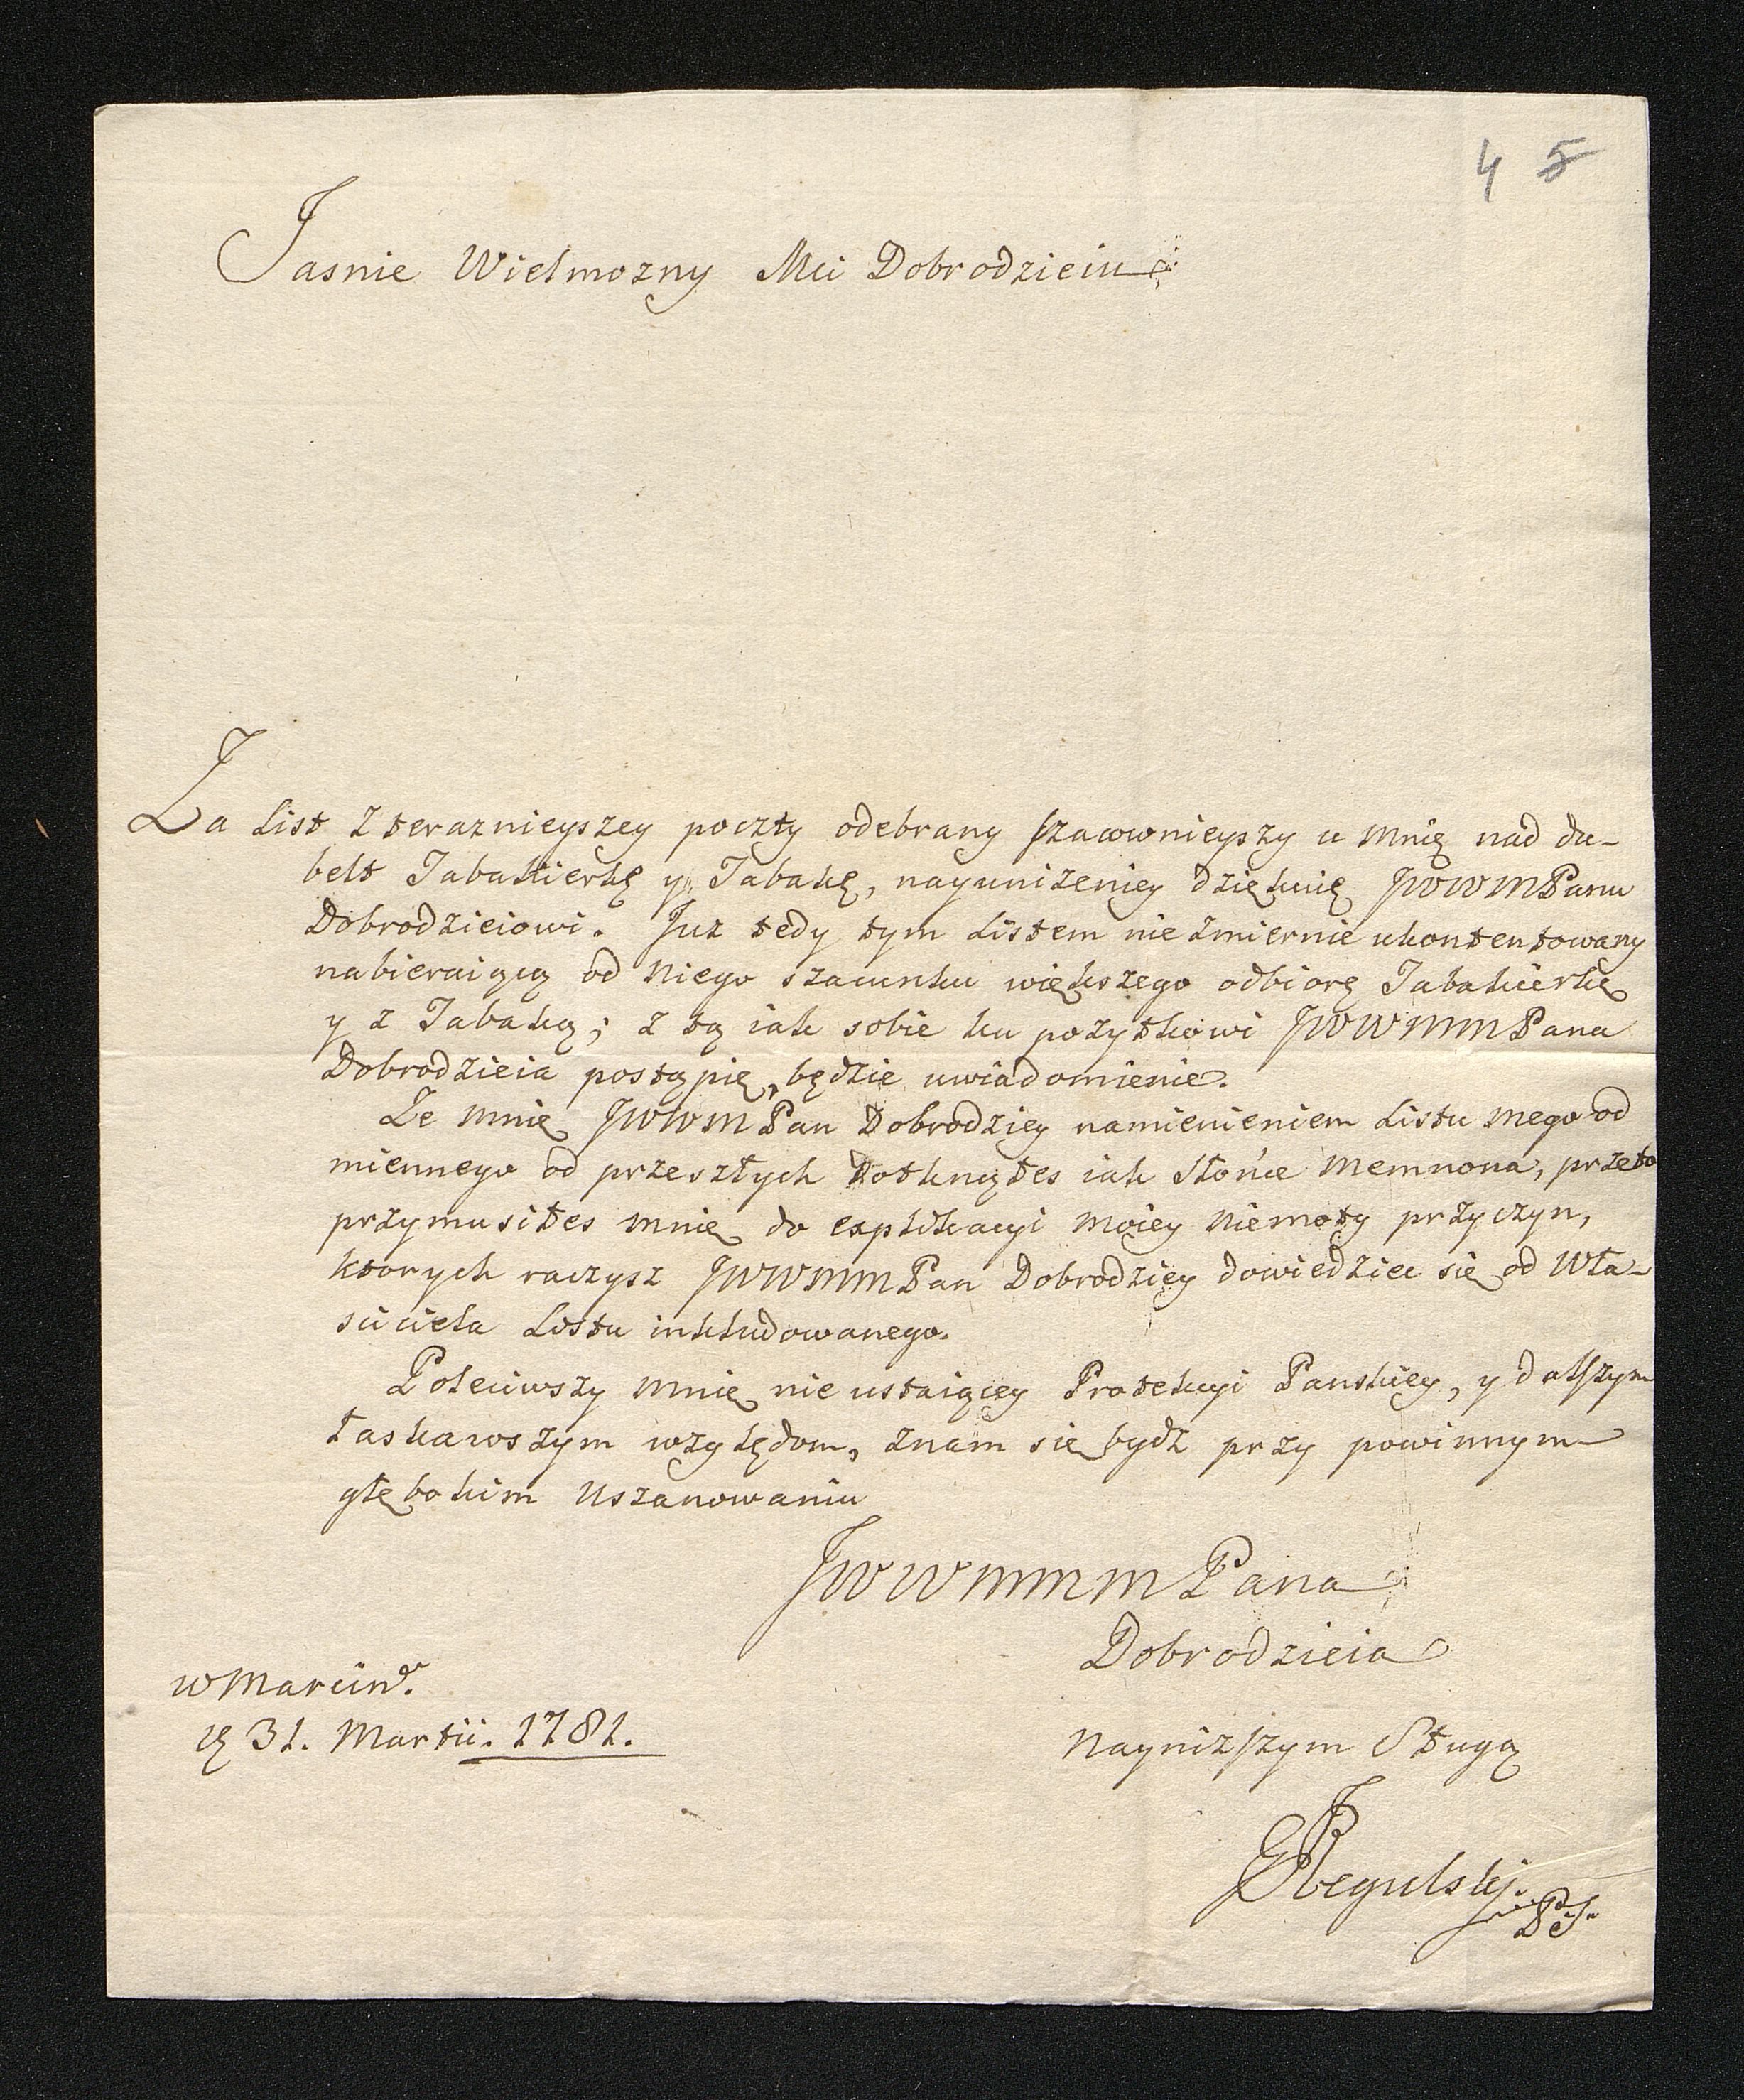 4 5
Jasnie Wielmozny Mci Dobrodzieiu
Za List z teraznieyszey poczty odebrany szacownieyszy u mnię nad du-
belt Tabakierkę y Tabakę, nayunizeniey dziękuię JWWMPanu
Dobrodzieiowi. Juz tedy tym Listem nie zmiernie ukontentowany
nabieraiącą od niego szacunku większego odbiorę Tabakierkę
y z Tabaką; z tą iak sobie ku pozytkowi JWWMMPana
Dobrodzieia postąpię, będzie uwiadomienie.
Ze mnię JWWMPan Dobrodziey namienieniem Listu mego od
miennego od przeszłych dotknąłes iak Słońce Memnona, przeto
przymusiłes mnię do explikacyi moiey niemoty przyczyn,
ktorych raczysz JWWMMPan Dobrodziey dowiedziec się od Wła-
sciciela Listu inkludowanego.
Poleciwszy mnię nie ustaiącey Protekcyi Panskiey, y dalszym
łaskawszym względom, znam się bydz przy powinnym
głębokim uszanowaniu
JWWMMMPana
Dobrodzieia
w Marcind.
31. Martii. 1781.
Nayniższym Sługą
Regulski